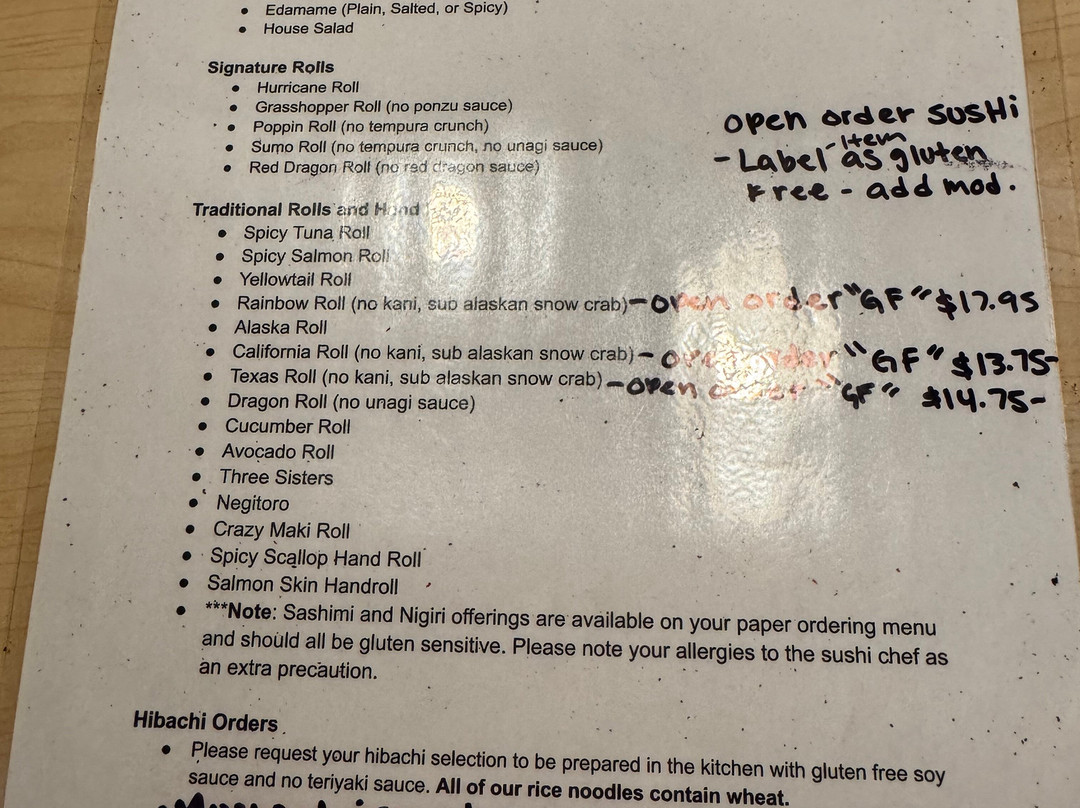 • Edamame (Plain, Salted, or Spicy)
• House Salad
Signature Rolls
• Hurricane Roll
• Grasshopper Roll (no ponzu sauce)
• Poppin Roll (no tempura crunch)
• Sumo Roll (no tempura crunch, no unagi sauce)
• Red Dragon Roll (no red dragon sauce)
open order susHi
item
- Label as gluten
Free - add mod.
Traditional Rolls and Hand
• Spicy Tuna Roll
• Spicy Salmon Roll
• Yellowtail Roll
• Rainbow Roll (no kani, sub alaskan snow crab) - open order "GF" $17.95
• Alaska Roll
• California Roll (no kani, sub alaskan snow crab) - open order "GF" $13.75-
• Texas Roll (no kani, sub alaskan snow crab) - open order "GF" $14.75-
• Dragon Roll (no unagi sauce)
• Cucumber Roll
• Avocado Roll
• Three Sisters
• Negitoro
• Crazy Maki Roll
• Spicy Scallop Hand Roll
• Salmon Skin Handroll
• ***Note: Sashimi and Nigiri offerings are available on your paper ordering menu
and should all be gluten sensitive. Please note your allergies to the sushi chef as
an extra precaution.
Hibachi Orders
• Please request your hibachi selection to be prepared in the kitchen with gluten free soy
sauce and no teriyaki sauce. All of our rice noodles contain wheat.